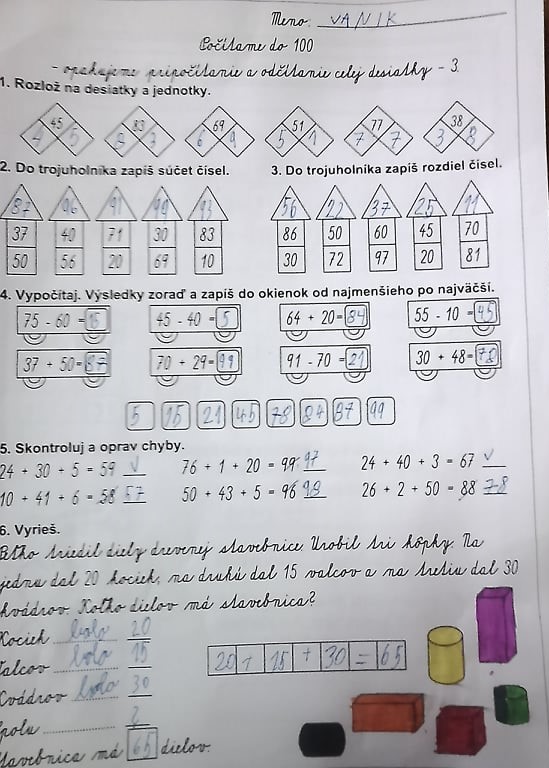 Meno: VANIK
Počítame do 100
- opakujeme pripočítanie a odčítanie celej desiatky - 3.
1. Rozlož na desiatky a jednotky.
45 83 69 51 77 38
4 5 8 3 6 9 5 1 7 7 3 8
2. Do trojuholníka zapíš súčet čísel. 3. Do trojuholníka zapíš rozdiel čísel.
87 96 91 99 93 56 22 37 25 11
37 40 71 30 83 86 50 60 45 70
50 56 20 69 10 30 72 97 20 81
4. Vypočítaj. Výsledky zoraď a zapíš do okienok od najmenšieho po najväčší.
75 - 60 = 15 45 - 40 = 5 64 + 20 = 84 55 - 10 = 45
37 + 50 = 87 70 + 29 = 99 91 - 70 = 21 30 + 48 = 78
5 15 21 45 78 84 87 99
5. Skontroluj a oprav chyby.
24 + 30 + 5 = 59 √ 76 + 1 + 20 = 99 97 24 + 40 + 3 = 67 √
10 + 41 + 6 = 58 57 50 + 43 + 5 = 96 98 26 + 2 + 50 = 88 78
6. Vyrieš.
Peťko triedil diely drevenej stavebnice. Urobil tri kôpky. Na
jednu dal 20 kociek, na druhú dal 15 valcov a na tretiu dal 30
kvádrov. Koľko dielov má stavebnica?
Kociek bolo 20
Valcov bolo 15
20 + 15 + 30 = 65
Kvádrov bolo 30
Spolu ?
Stavebnica má 65 dielov.